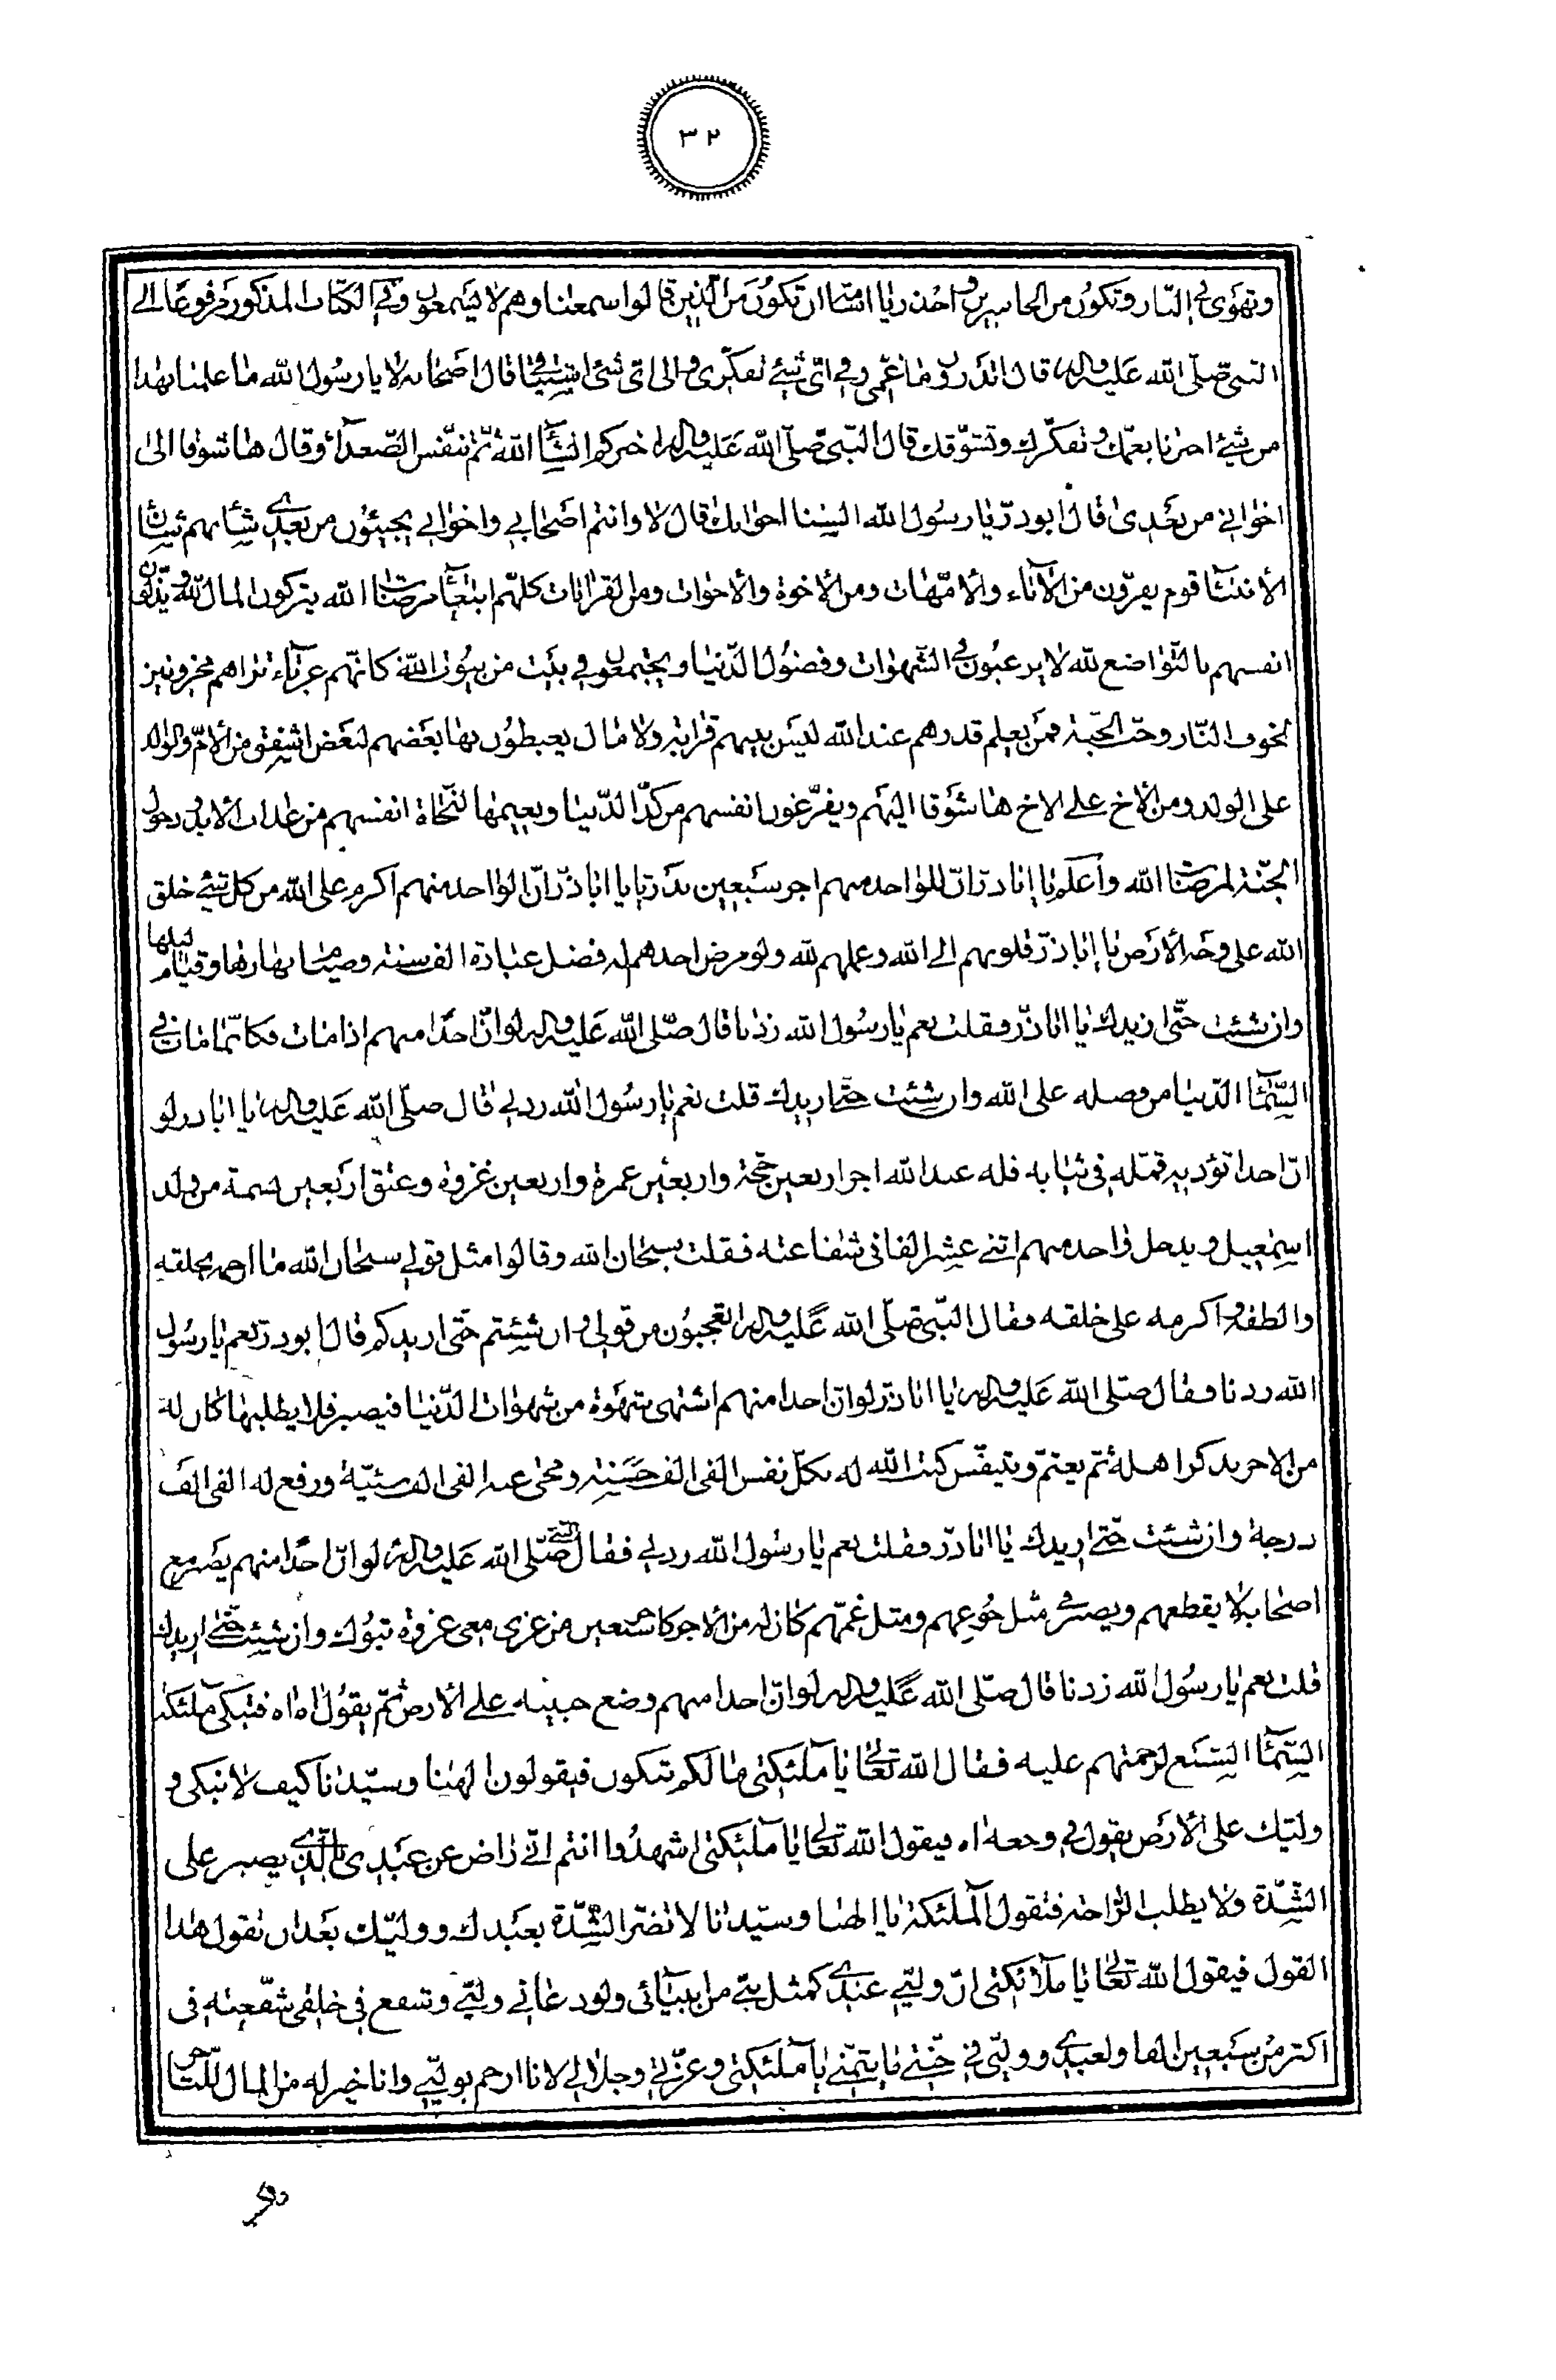 ٣٢
وتهوى في النّار وتكون من الخاسرين واحذر يا اسامة ان تكون من الّذين قالوا سمعنا وهم لا يسمعون وفي الكتاب المذكور مرفوعا الى
النبي صلّى الله عليه واله قال اتدرون ما غمّى وفي اىّ شئ تفكّرى والى اىّ شئ اشتياقى قال اصحابه لا يا رسول الله ما علمنا بهذا
من شئ اخبرنا بغمّك وتفكّرك وتشوّقك قال النّبي صلّى الله عليه واله اخبركم انشاء الله ثمّ تنفّس الصّعداء وقال هاه شوقا الى
اخوانى من بعدى فقال ابو ذرّ يا رسول الله السنا اخوانك قال لا وانتم اصحابى واخوانى يجيئون من بعدى شانهم شان
الانبياء قوم يفرّون من الآباء والامّهات ومن الاخوة والاخوات ومن القرابات كلّهم ابتغاء مرضات الله يتركون المال لله ويذلّون
انفسهم بالتّواضع لله لا يرغبون في الشّهوات وفضول الدّنيا ويجتمعون في بيت من بيوت الله كانّهم غرباء تراهم محزونين
لخوف النّار وحبّ الجنّة فمن يعلم قدرهم عند الله ليس بينهم قرابة ولا مال يعطون بها بعضهم لبعض اشفق من الامّ والوالد
على الولد ومن الاخ على الاخ هاه شوقا اليهم ويفرّغون انفسهم من كدّ الدّنيا ونعيمها لنجاة انفسهم من عذاب الابد ودخول
الجنّة لمرضات الله واعلم يا ابا ذرّ انّ للواحد منهم اجر سبعين بدريّا يا ابا ذرّ انّ الواحد منهم اكرم على الله من كل شئ خلق
الله على وجه الارض يا ابا ذرّ قلوبهم الى الله وعملهم لله ولو مرض احدهم له فضل عبادة الف سنة وصيام نهارها وقيام ليلها
وان شئت حتّى ازيدك يا ابا ذرّ فقلت نعم يا رسول الله زدنا قال صلّى الله عليه واله لو انّ احدا منهم اذا مات فكانّما مات في
السّماء الدّنيا من فضله على الله وان شئت حتّى ازيدك قلت نعم يا رسول الله زدنى قال صلّى الله عليه واله يا ابا ذر لو
انّ احدا تؤذيه قملة في ثيابه فله عند الله اجر اربعين حجّة واربعين عمرة واربعين غزوة وعتق اربعين نسمة من ولد
اسمعيل ويدخل واحد منهم اثنى عشر الفا في شفاعته فقلت سبحان الله وقالوا مثل قولى سبحان الله ما ارحمه بخلقه
والطفه واكرمه على خلقه فقال النّبي صلّى الله عليه واله اتعجبون من قولى وان شئتم حتّى ازيدكم قال ابو ذرّ نعم يا رسول
الله زدنا فقال صلّى الله عليه واله يا ابا ذرّ لو انّ احدا منهم اشتهى شهوة من شهوات الدّنيا فيصبر فلا يطلبها كان له
من الاجر بذكر اهله ثمّ يغتمّ ويتنفّس كتب الله له بكلّ نفس الفى الف حسنة ومحى عنه الفى الف سيّئة ورفع له الفى الف
درجة وان شئت حتّى ازيدك يا ابا ذرّ فقلت نعم يا رسول الله زدنى فقال النّبي صلّى الله عليه واله لو انّ احدا منهم يصبر مع
اصحابه لا يقطعهم ويصبر في مثل جوعهم ومثل غمّهم كان له من الاجر كاجر سبعين من غزى معى غزوة تبوك وان شئت حتّى ازيدك
قلت نعم يا رسول الله زدنا قال صلّى الله عليه واله لو انّ احدا منهم وضع جبينه على الارض ثمّ يقول اه اه فتبكى ملئكة
السّماء السّبع لرحمتهم عليه فقال الله تعالى يا ملئكتى ما لكم تبكون فيقولون الهنا وسيّدنا كيف لا نبكى و
وليّك على الارض يقول في وجعه اه فيقول الله تعالى يا ملئكتى اشهدوا انتم انّى راض عن عبدى بالّذى يصبر على
الشّدّة ولا يطلب الرّاحة فتقول الملئكة يا الهنا وسيّدنا لا تضرّ الشّدّة بعبدك ووليّك بعد ان تقول هذا
القول فيقول الله تعالى يا ملائكتى انّ وليّى عندى كمثل نبىّ من انبيائى ولو دعانى وليّى وشفع في خلقى شفّعته في
اكثر من سبعين الفا ولعبدى ووليّى في جنّتى ما يتمنّى يا ملئكتى وعزّتى وجلالى لانا ارحم بوليّى وانا خير له من المال للتّاجر